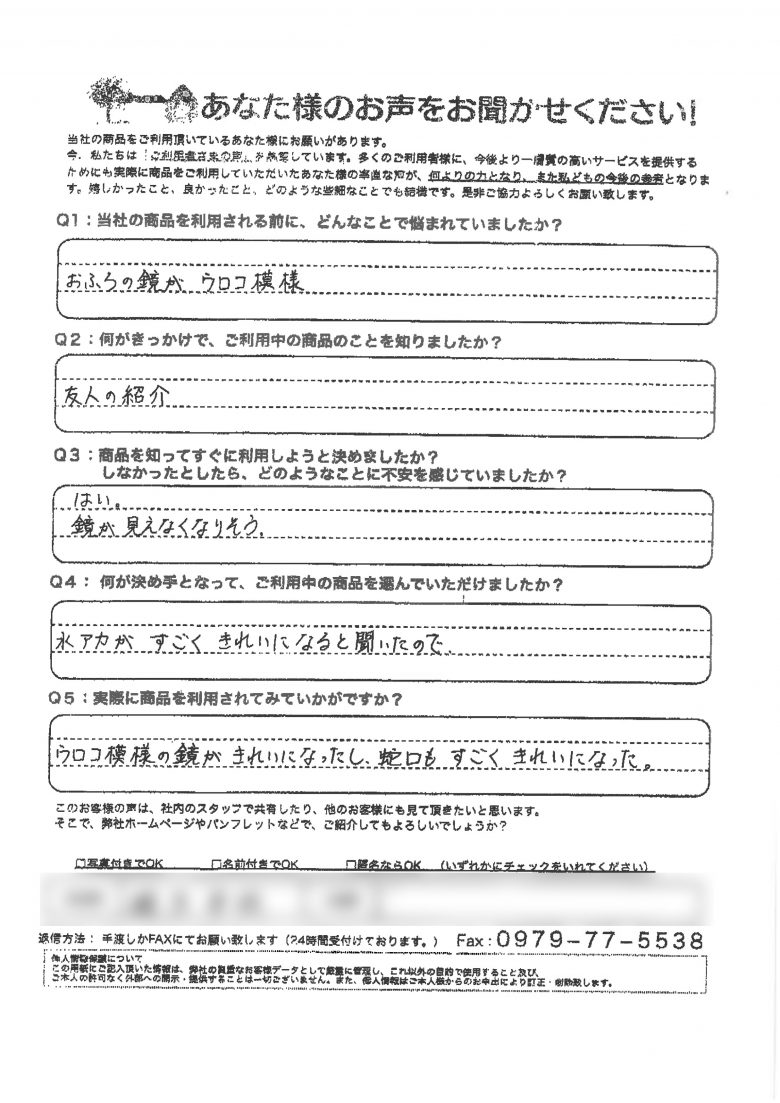 あなた様のお声をお聞かせください!
当社の商品をご利用頂いているあなた様にお願いがあります。
今、私たちは「ご利用者さまの声」を募集しています。多くのご利用者様に、今後より一層質の高いサービスを提供する
ためにも実際に商品をご利用していただいたあなた様の率直な声が、何よりの力となり、また私どもの今後の参考となりま
す。嬉しかったこと、良かったこと、どのような些細なことでも結構です。是非ご協力よろしくお願い致します。
Q1：当社の商品を利用される前に、どんなことで悩まれていましたか?
おふろの鏡が ウロコ模様
Q2：何がきっかけで、ご利用中の商品のことを知りましたか?
友人の紹介
Q3：商品を知ってすぐに利用しようと決めましたか?
しなかったとしたら、どのようなことに不安を感じていましたか?
はい。
鏡が見えなくなりそう。
Q4：何が決め手となって、ご利用中の商品を選んでいただけましたか?
水アカが すごく きれいになると聞いたので。
Q5：実際に商品を利用されてみていかがですか?
ウロコ模様の鏡が きれいになったし、蛇口も すごく きれいになった。
このお客様の声は、社内のスタッフで共有したり、他のお客様にも見て頂きたいと思います。
そこで、弊社ホームページやパンフレットなどで、ご紹介してもよろしいでしょうか?
□写真付きでOK □名前付きでOK □匿名ならOK （いずれかにチェックをいれてください）
返信方法：手渡しかFAXにてお願い致します（24時間受付けております。） Fax：0979-77-5538
個人情報保護について
この用紙にご記入頂いた情報は、弊社の貴重なお客様データとして厳重に管理し、これ以外の目的で使用すること及び、
ご本人の許可なく外部への開示・提供することは一切ございません。また、個人情報はご本人様からのお申出により訂正・削除致します。